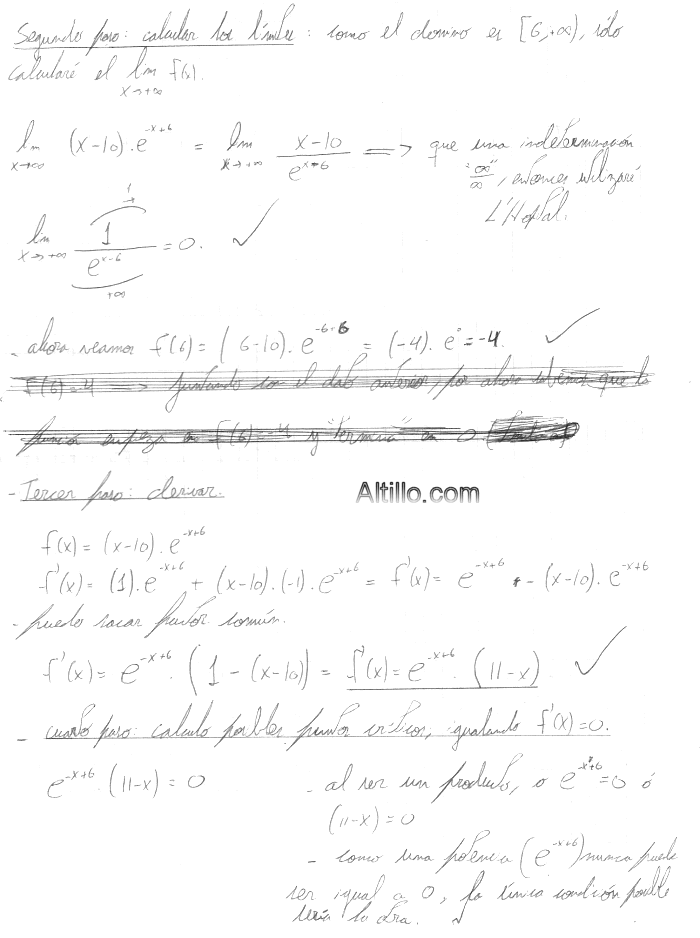 Segundo paso: calcular los límites: como el dominio es [6,+∞), sólo
calcularé el lim f(x).
x→+∞
lim (x-10).e^(-x+6) = lim (x-10)/(e^(x-6)) => que una indeterminación
x→+∞ x→+∞ "∞/∞", entonces utilizaré
L'Hopital.
lim 1/(e^(x-6)) = 0. ✓
x→+∞
1
+∞
- ahora veamos f(6) = (6-10).e^(-6+6) = (-4).e^0 = -4. ✓
f(6)=4 => juntando con el dato anterior, por ahora sabemos que la
función empieza en f(6)=-4 y "termina" en 0
- Tercer paso: derivar.
Altillo.com
f(x) = (x-10).e^(-x+6)
f'(x) = (1).e^(-x+6) + (x-10).(-1).e^(-x+6) = f'(x) = e^(-x+6) - (x-10).e^(-x+6)
- puedo sacar factor común.
f'(x) = e^(-x+6).(1-(x-10)) = f'(x) = e^(-x+6).(11-x) ✓
- cuarto paso: calculo posibles puntos críticos, igualando f'(x)=0.
e^(-x+6).(11-x) = 0
- al ser un producto, o e^(-x+6)=0 ó
(11-x)=0
- como una potencia (e^(-x+6)) nunca puede
ser igual a 0, la única condición posible
sería la otra.